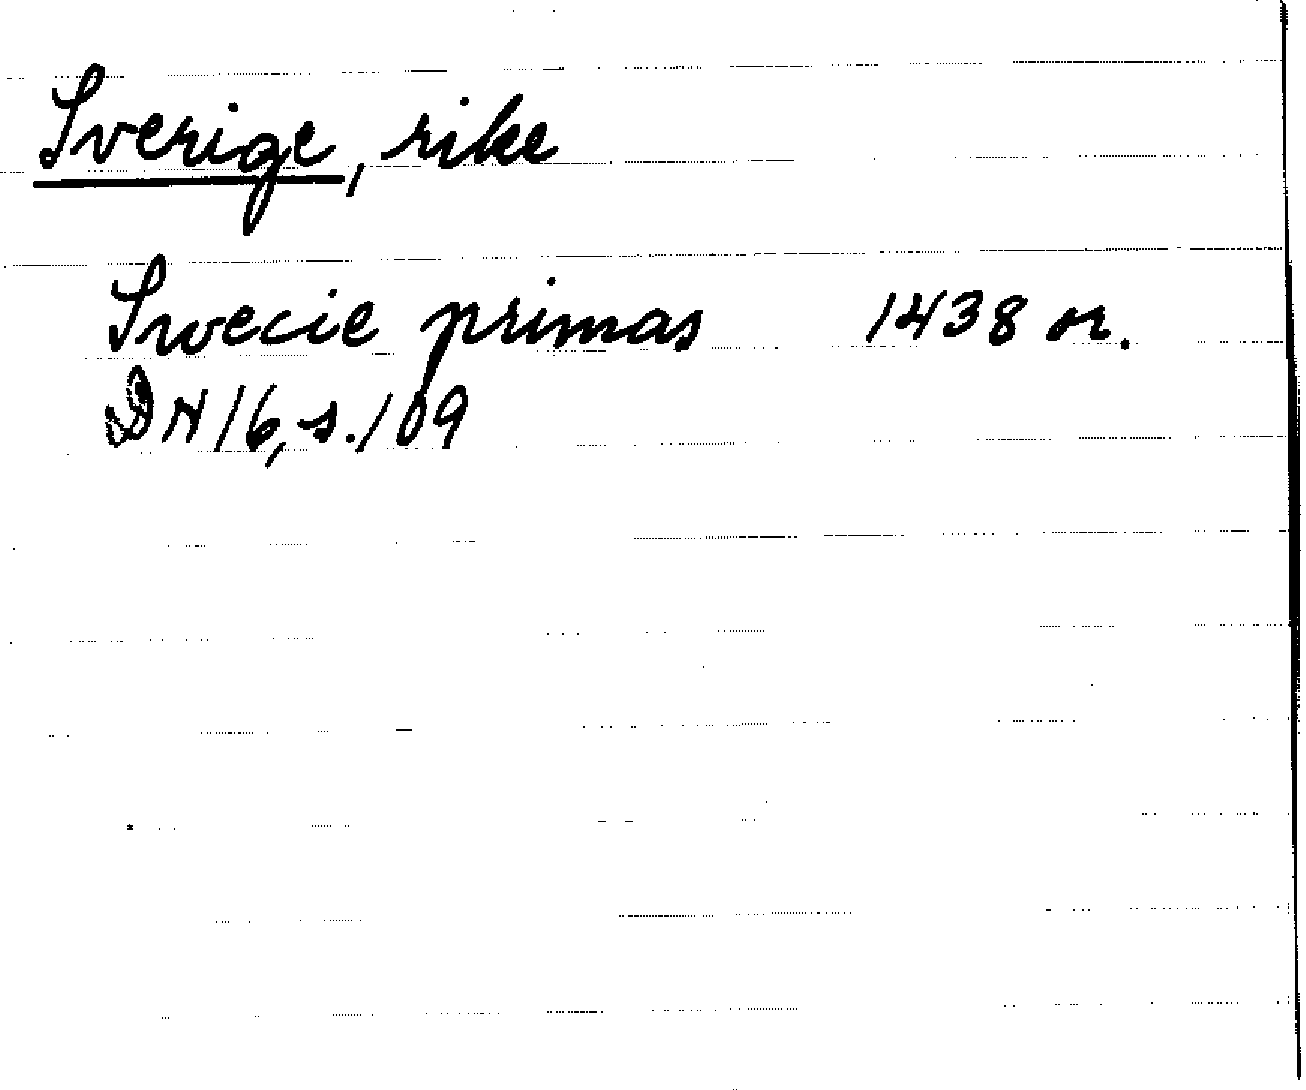 Sverige, rike
Swecie primas 1438 or.
DN 16, s. 109